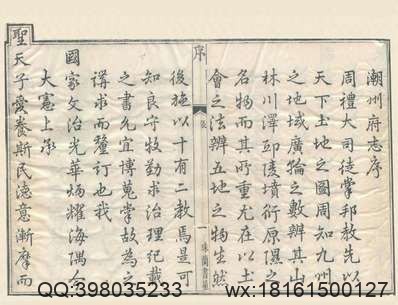 潮州府志序
周禮大司徒掌邦教先以
天下土地之圖周知九州
之地域廣輪之數辨其山
林川澤邱陵墳衍原隰之
名物而其所重尤在以土
會之法辨五地之物生然
序
一
珠蘭書屋
後施以十有二教焉是可
知良守牧勤求治理紀載
之書允宜博蒐掌故為
講求而釐訂也我
國家文治光華炳耀海隅今
大憲上承
聖天子愛養斯民德意漸摩而
QQ:398035233
wx:18161500127